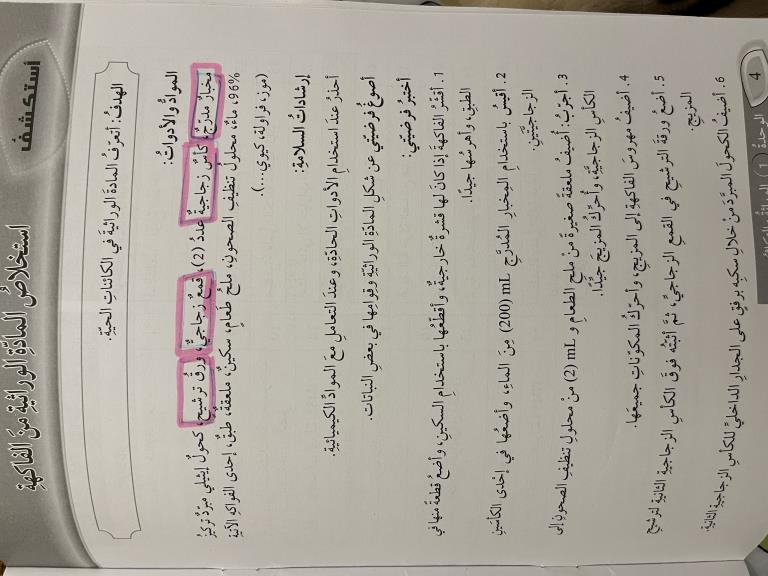 أستكشف
استخلاصُ المادّةِ الوراثيةِ منَ الفاكهةِ
الهدفُ: أتعرّفُ المادةَ الوراثيةَ في الكائناتِ الحيّةِ.
الموادُّ والأدواتُ:
مِخبارٌ مدرَّجٌ، كأسٌ زجاجيةٌ عددُ (2)، قمعٌ زجاجيٌّ، ورقُ ترشيحٍ، كحولٌ إيثيليٌّ مبرّدٌ تركيزُ
96%، ماءٌ، محلولُ تنظيفِ الصحونِ، ملحُ طعامٍ، سكينٌ، ملعقةٌ، طبقٌ، إحدى الفواكهِ الآتيةِ
(موز، فراولة، كيوي...).
إرشاداتُ السلامةِ:
أحذرُ عندَ استخدامِ الأدواتِ الحادّةِ، وعندَ التعاملِ معَ الموادِّ الكيميائيةِ.
أصوغُ فرضيّتي عن شكلِ المادّةِ الوراثيةِ وقوامِها في بعضِ النباتاتِ.
أختبرُ فرضيّتي:
1. أقشّرُ الفاكهةَ إذا كانَ لها قشرةٌ خارجيةٌ، وأقطّعُها باستخدامِ السكينِ، وأضعُ قطعةً منها في
الطبقِ، وأهرسُها جيدًا.
2. أقيسُ باستخدامِ المِخبارِ المُدرَّجِ 200) mL) مِنَ الماءِ، وأضعُها في إحدى الكأسَينِ
الزجاجيّتَينِ.
3. أجرّبُ: أضيفُ ملعقةً صغيرةً منْ ملحِ الطعامِ و 2) mL) من محلولِ تنظيفِ الصحونِ إلى
الكأسِ الزجاجيّةِ، وأحرّكُ المزيجَ جيدًا.
4. أضيفُ مهروسَ الفاكهةِ إلى المزيجِ، وأحرّكُ المكوّناتِ جميعَها.
5. أضعُ ورقةَ الترشيحِ في القمعِ الزجاجيِّ، ثمَّ أثبّتُه فوقَ الكأسِ الزجاجيةِ الثانيةِ لترشيحِ
المزيجِ.
6. أضيفُ الكحولَ المبرّدَ منْ خلالِ سكبِه برفقٍ على الجدارِ الداخليِّ للكأسِ الزجاجيةِ الثانيةِ.
4
الوحدةُ (1)